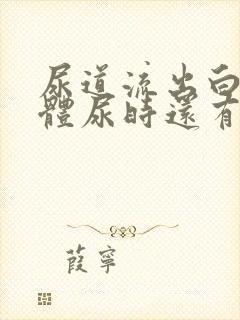 尿道流出白
體尿時還有
葭寧